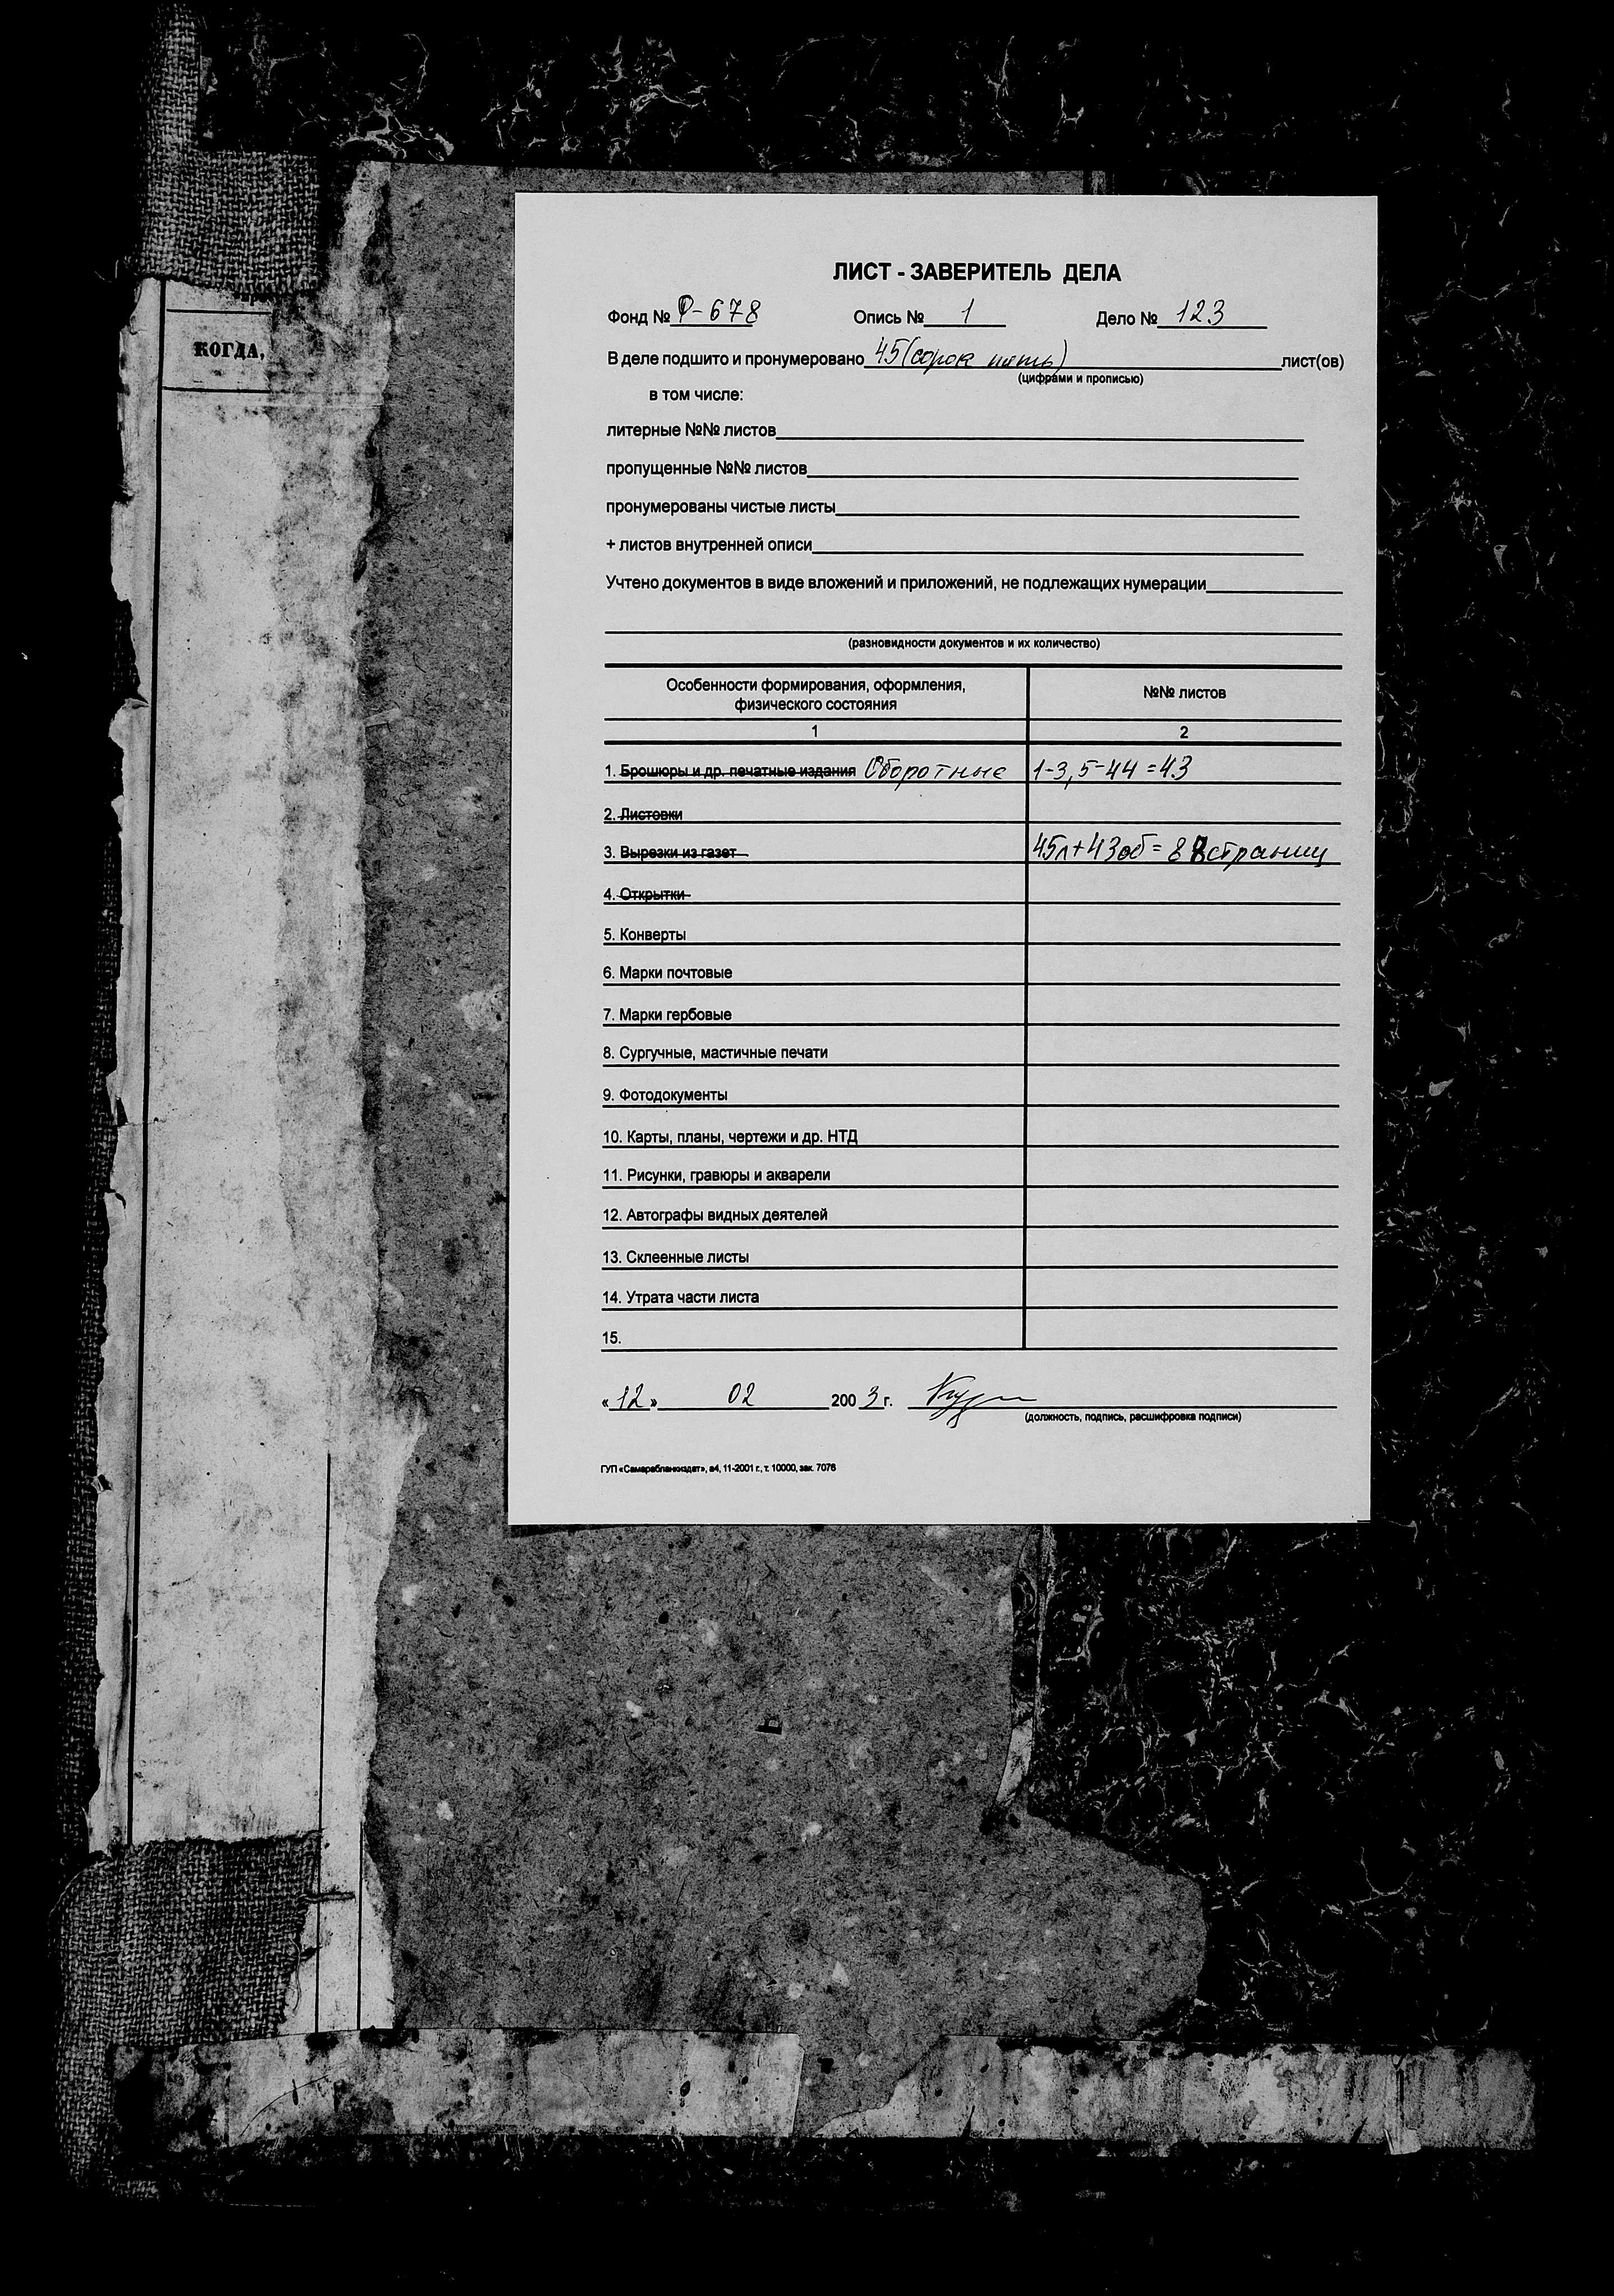 КОГДА,
ЛИСТ - ЗАВЕРИТЕЛЬ ДЕЛА
Фонд № Р-678 Опись № 1 Дело № 123
В деле подшито и пронумеровано 45 (сорок пять) лист(ов)
(цифрами и прописью)
в том числе:
литерные №№ листов
пропущенные №№ листов
пронумерованы чистые листы
+ листов внутренней описи
Учтено документов в виде вложений и приложений, не подлежащих нумерации
(разновидности документов и их количество)
Особенности формирования, оформления, №№ листов
физического состояния
1 2
1. Брошюры и др. печатные издания Оборотные 1-3, 5-44 = 43
2. Листовки
3. Вырезки из газет 45л + 43об = 88 страниц
4. Открытки
5. Конверты
6. Марки почтовые
7. Марки гербовые
8. Сургучные, мастичные печати
9. Фотодокументы
10. Карты, планы, чертежи и др. НТД
11. Рисунки, гравюры и акварели
12. Автографы видных деятелей
13. Склеенные листы
14. Утрата части листа
15.
«12» 02 2003 г.
(должность, подпись, расшифровка подписи)
ГУП «Самарабланкиздат», а4, 11-2001 г., т. 10000, зак. 7076